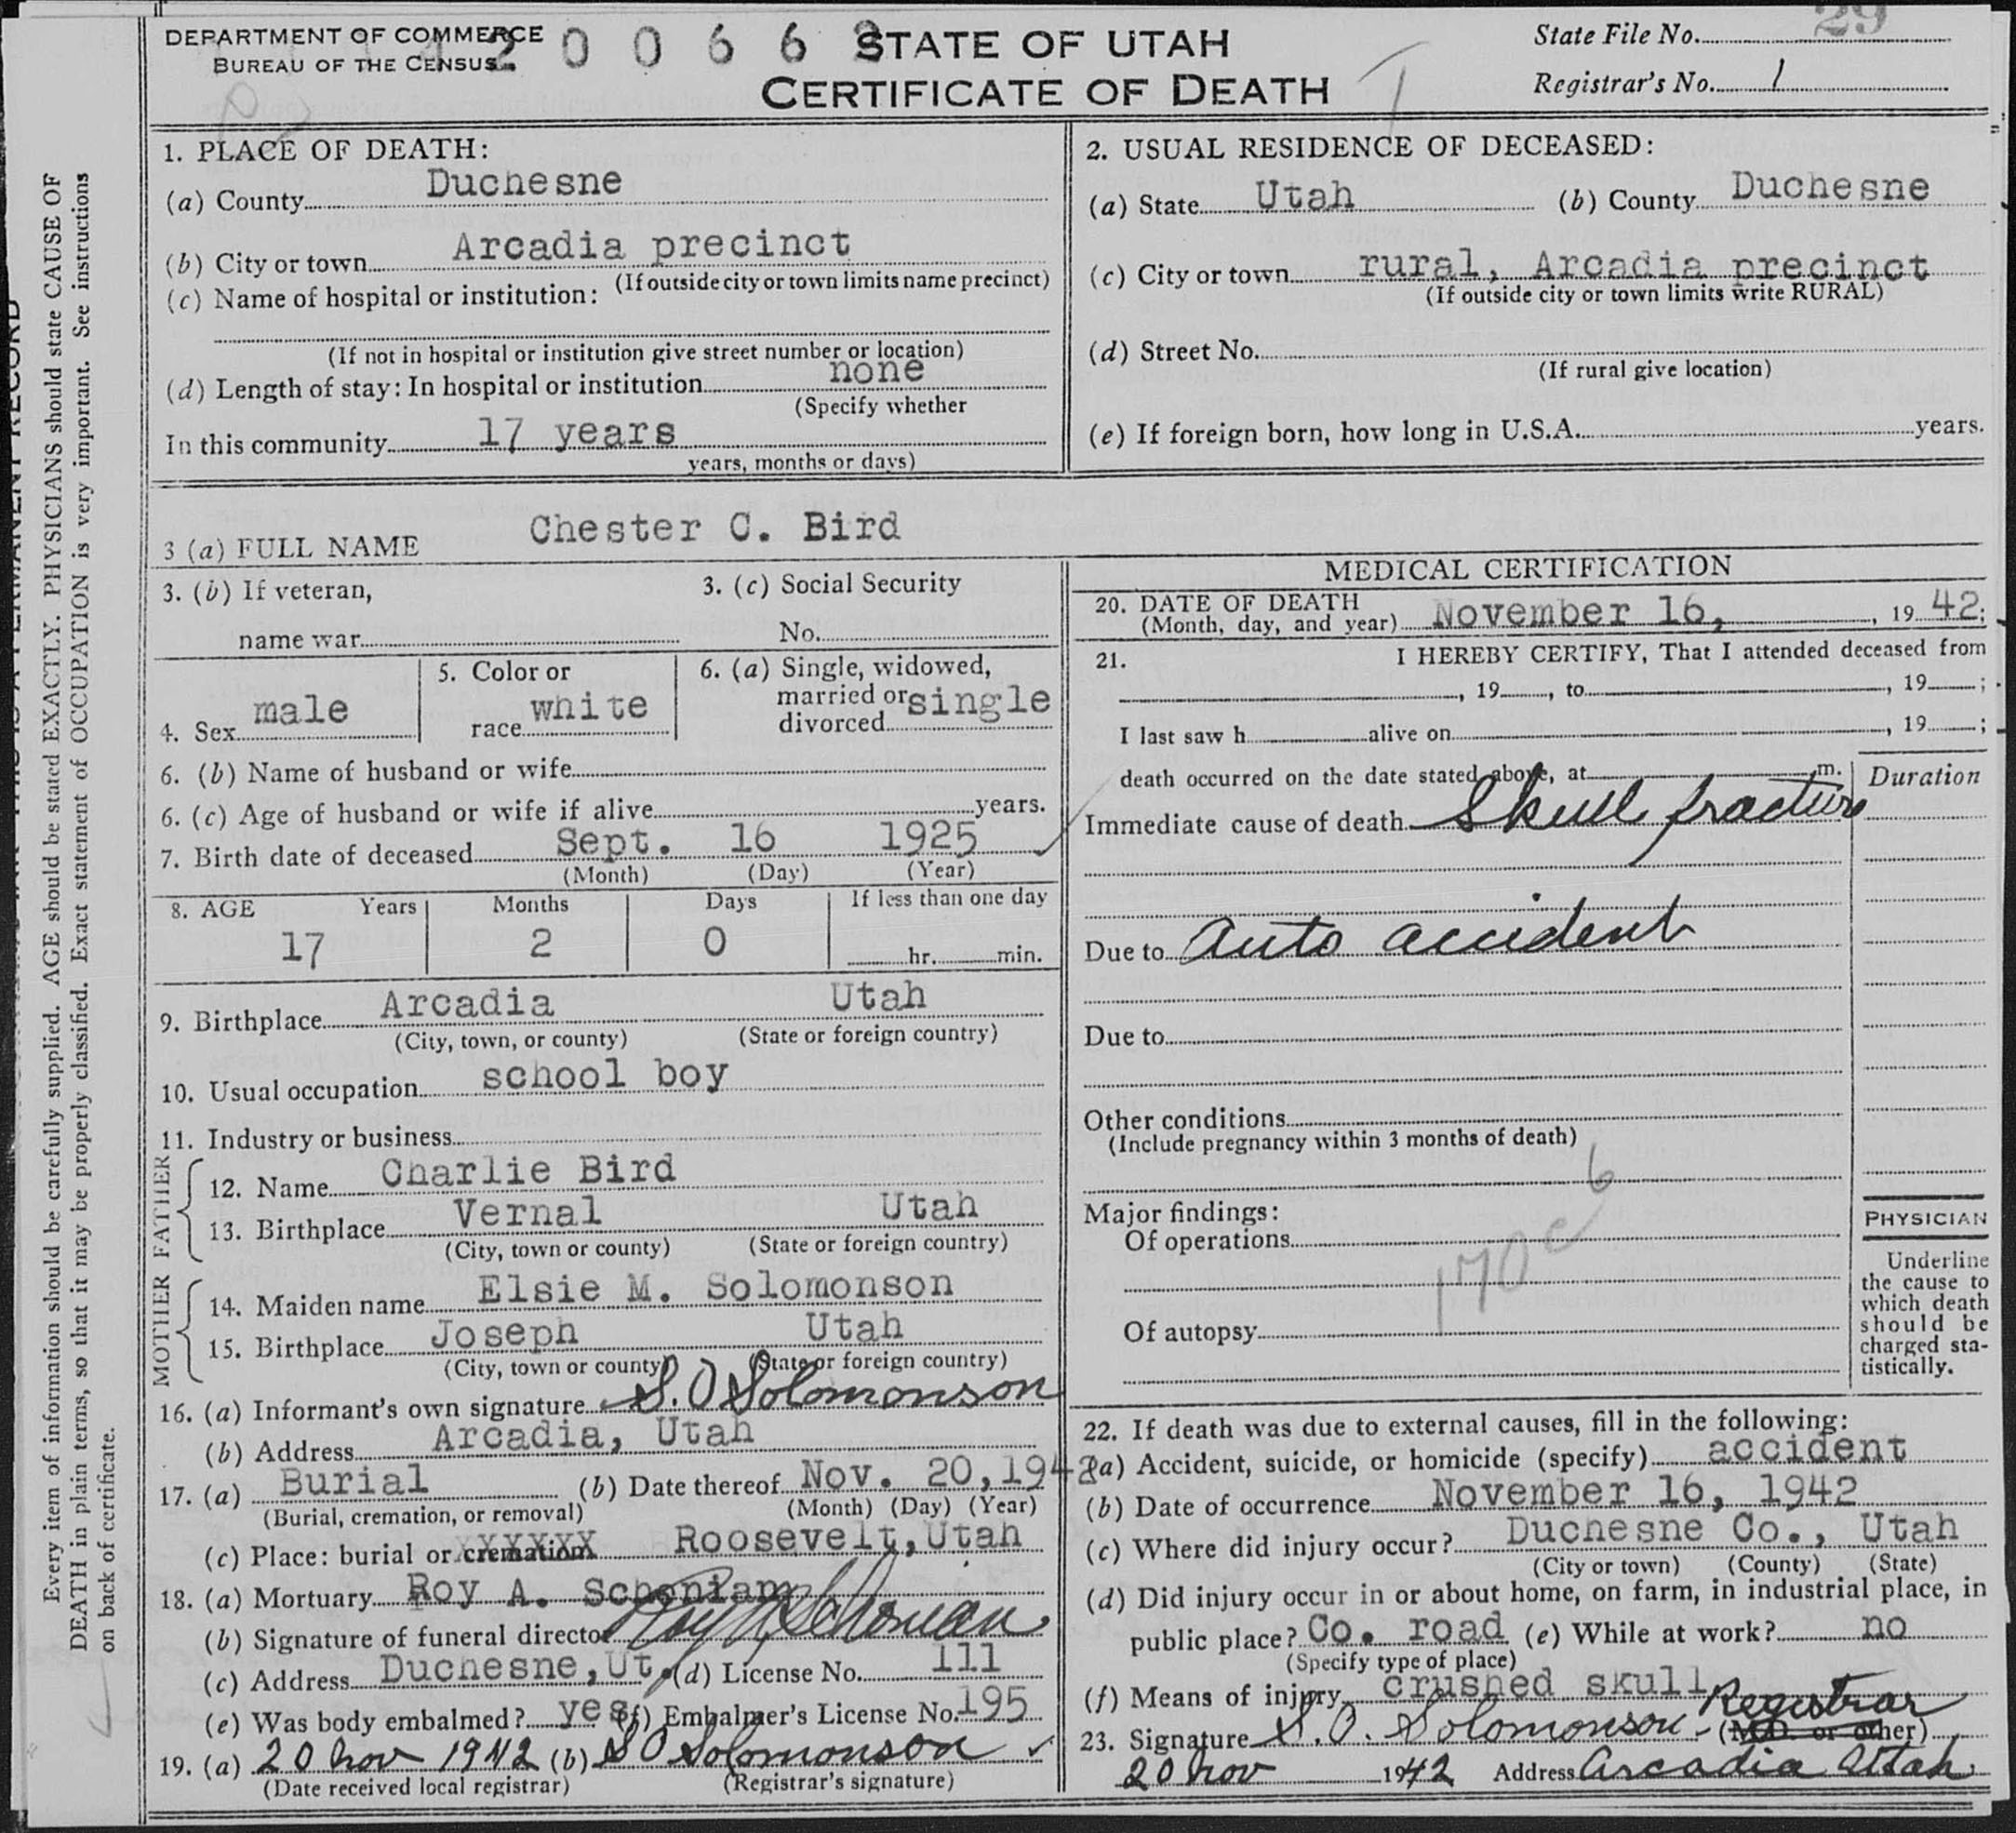 DEPARTMENT OF COMMERCE
BUREAU OF THE CENSUS
2 0 0 6 6
STATE OF UTAH
CERTIFICATE OF DEATH
State File No. 29
Registrar's No. 1
1. PLACE OF DEATH:
(a) County Duchesne
(b) City or town Arcadia precinct
(If outside city or town limits name precinct)
(c) Name of hospital or institution:
(If not in hospital or institution give street number or location)
(d) Length of stay: In hospital or institution none
(Specify whether
In this community 17 years
years, months or days)
2. USUAL RESIDENCE OF DECEASED:
(a) State Utah (b) County Duchesne
(c) City or town rural, Arcadia precinct
(If outside city or town limits write RURAL)
(d) Street No.
(If rural give location)
(e) If foreign born, how long in U.S.A. years.
3 (a) FULL NAME Chester C. Bird
3. (b) If veteran,
name war
3. (c) Social Security
No.
4. Sex male
5. Color or
race white
6. (a) Single, widowed,
married or single
divorced
6. (b) Name of husband or wife
6. (c) Age of husband or wife if alive years.
7. Birth date of deceased Sept. 16 1925
(Month) (Day) (Year)
8. AGE Years Months Days If less than one day
17 2 0 hr. min.
9. Birthplace Arcadia Utah
(City, town, or county) (State or foreign country)
10. Usual occupation school boy
11. Industry or business
FATHER
12. Name Charlie Bird
13. Birthplace Vernal Utah
(City, town or county) (State or foreign country)
MOTHER
14. Maiden name Elsie M. Solomonson
15. Birthplace Joseph Utah
(City, town or county) (State or foreign country)
16. (a) Informant's own signature S. O Solomonson
(b) Address Arcadia, Utah
17. (a) Burial (b) Date thereof Nov. 20, 1942
(Burial, cremation, or removal) (Month) (Day) (Year)
(c) Place: burial or cremation xxxxxx Roosevelt, Utah
18. (a) Mortuary Roy A. Scheniam
(b) Signature of funeral director Roy A Schonian
(c) Address Duchesne, Ut. (d) License No. 111
(e) Was body embalmed? yes (f) Embalmer's License No. 195
19. (a) 20 Nov 1942 (b) S O Solomonson
(Date received local registrar) (Registrar's signature)
MEDICAL CERTIFICATION
20. DATE OF DEATH
(Month, day, and year) November 16, , 19 42;
21. I HEREBY CERTIFY, That I attended deceased from
, 19 , to , 19 ;
I last saw h alive on , 19 ;
death occurred on the date stated above, at m.
Duration
Immediate cause of death Skull fracture
Due to Auto accident
Due to
Other conditions
(Include pregnancy within 3 months of death)
6
Major findings:
Of operations
170c
Of autopsy
PHYSICIAN
Underline
the cause to
which death
should be
charged sta-
tistically.
22. If death was due to external causes, fill in the following:
(a) Accident, suicide, or homicide (specify) accident
(b) Date of occurrence November 16, 1942
(c) Where did injury occur? Duchesne Co., Utah
(City or town) (County) (State)
(d) Did injury occur in or about home, on farm, in industrial place, in
public place? Co. road (e) While at work? no
(Specify type of place)
(f) Means of injury crushed skull
Registrar
23. Signature S. O. Solomonson - (M.D. or other)
20 Nov 1942 Address Arcadia Utah
Every item of information should be carefully supplied. AGE should be stated EXACTLY. PHYSICIANS should state CAUSE OF
DEATH in plain terms, so that it may be properly classified. Exact statement of OCCUPATION is very important. See instructions
on back of certificate.